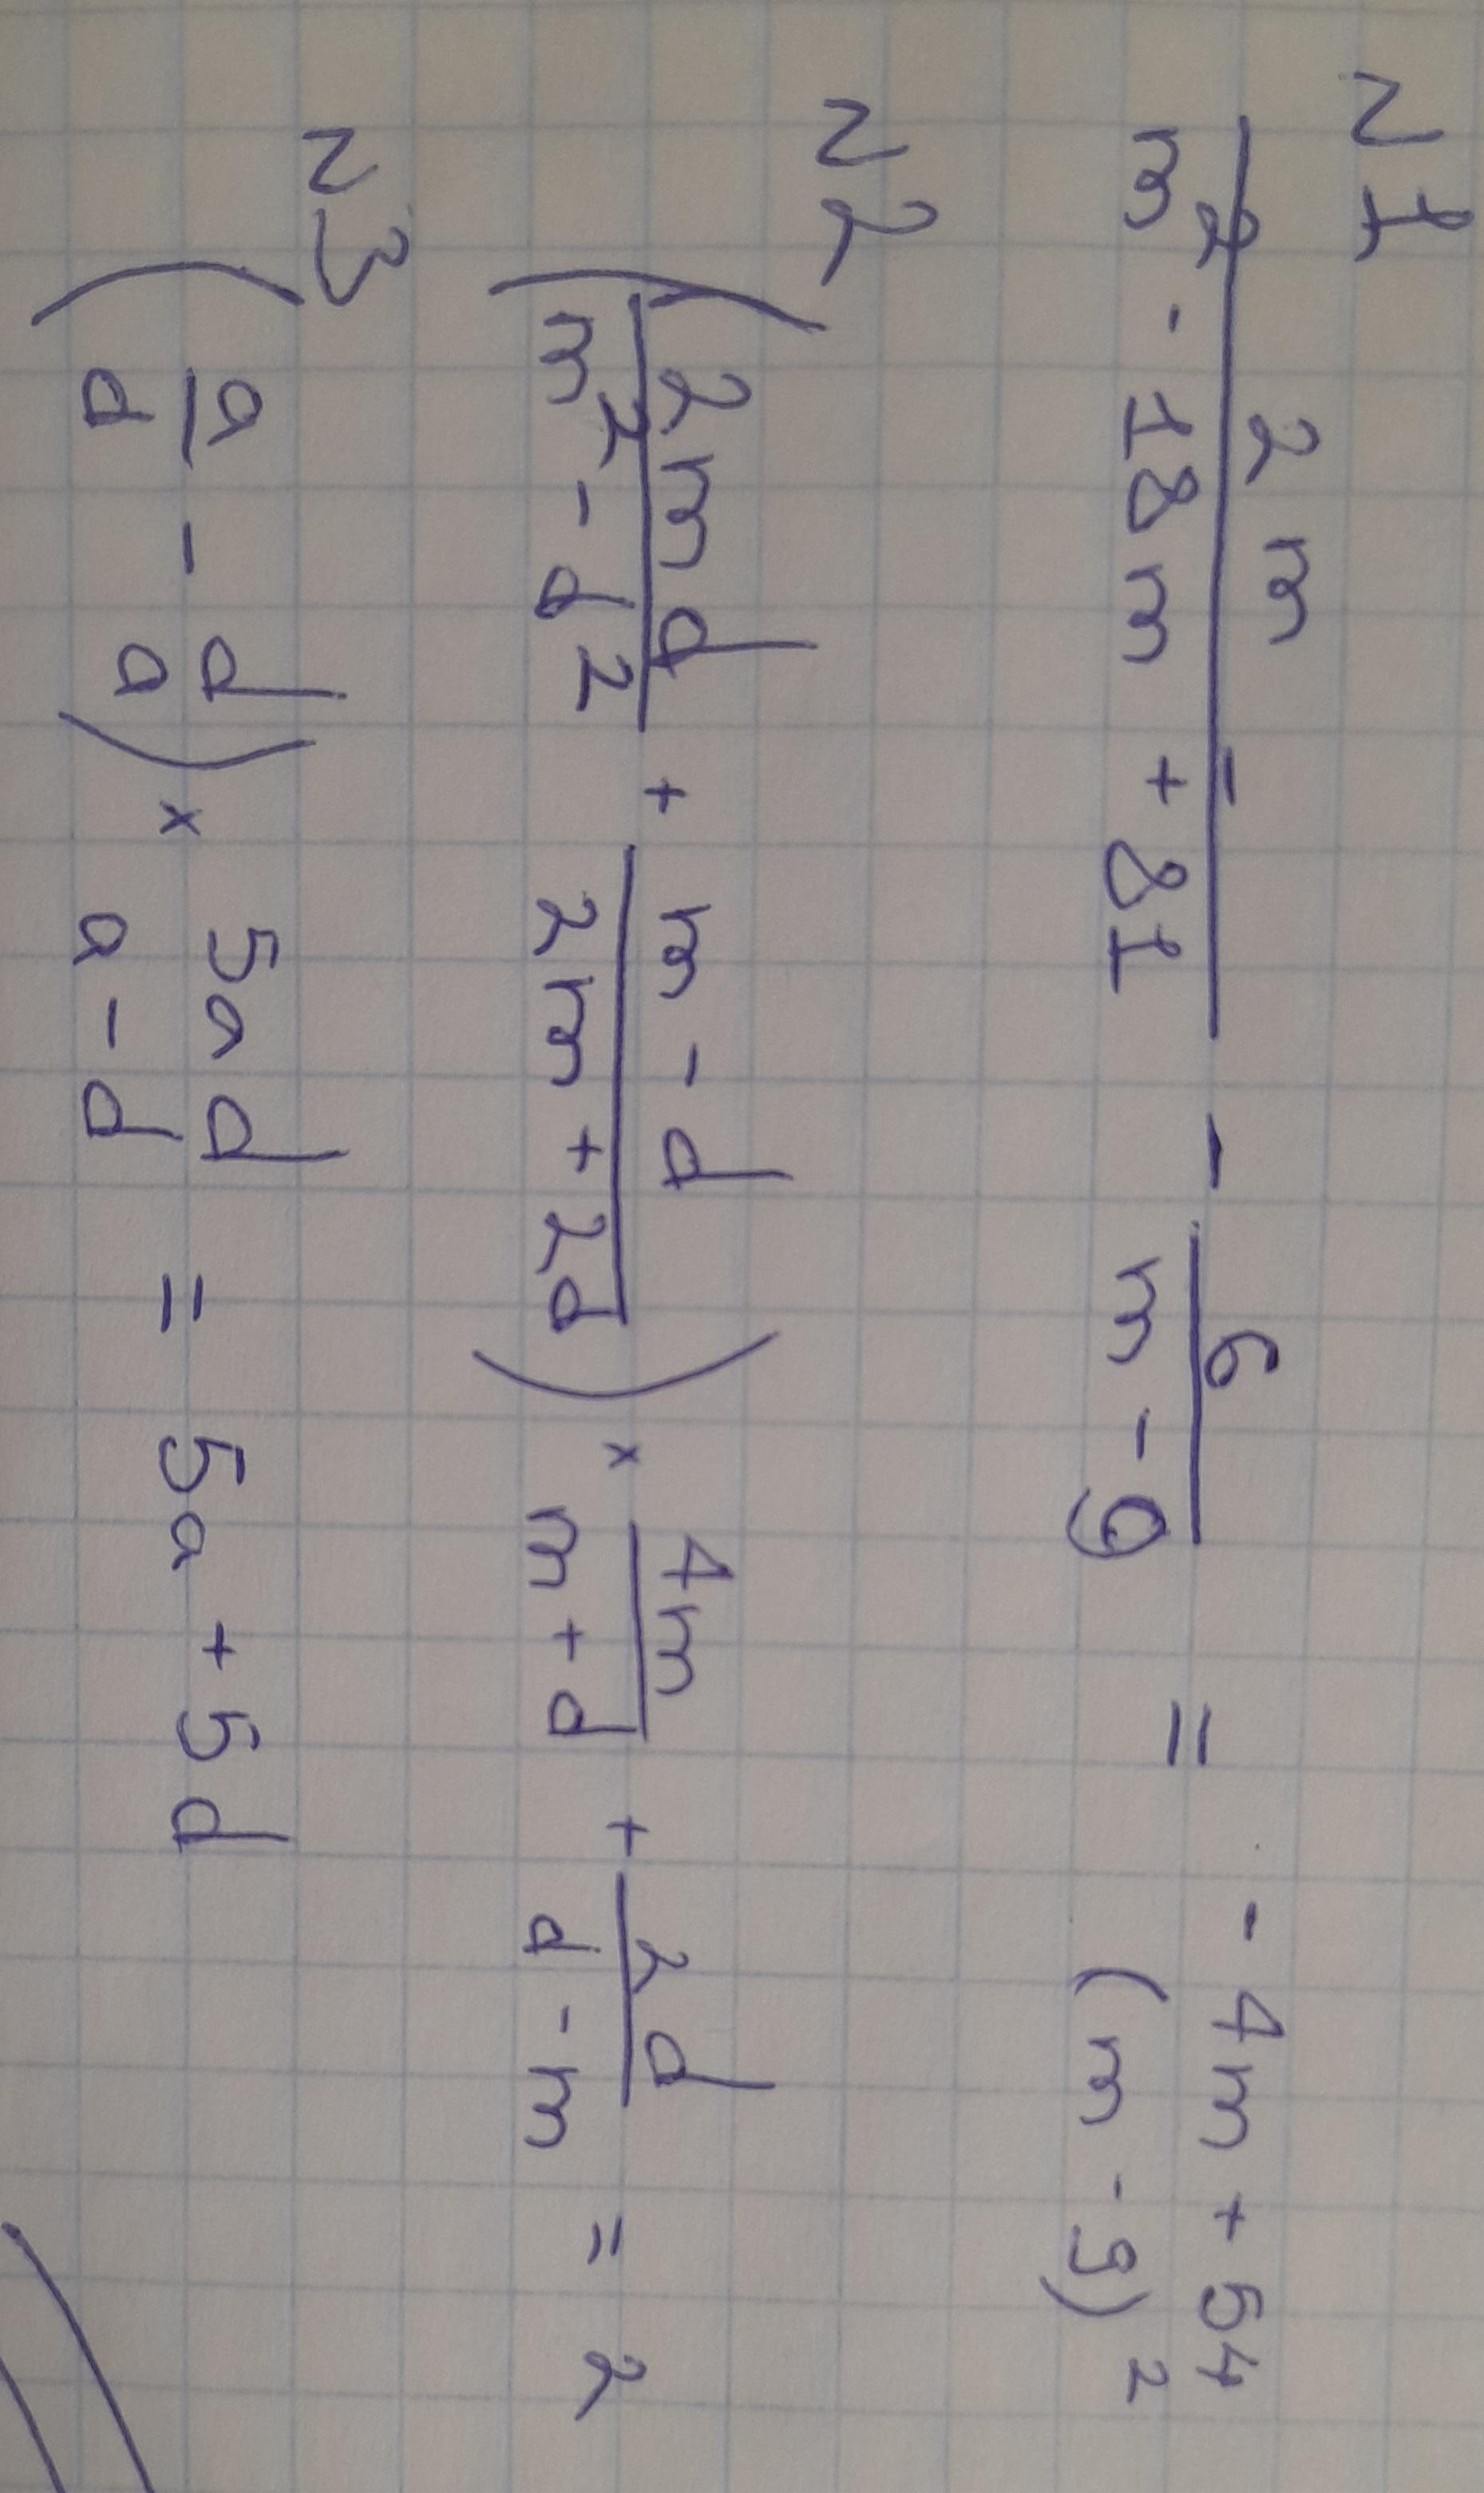 N1
2m / m² - 18m + 81 - 6 / m - 9 = - 4m + 54 / (m - 9)²
N2
(2md / m² - d² + m - d / 2m + 2d) × 4m / m + d + 2d / d - m = 2
N3
(a / d - d / a) × 5ad / a - d = 5a + 5d